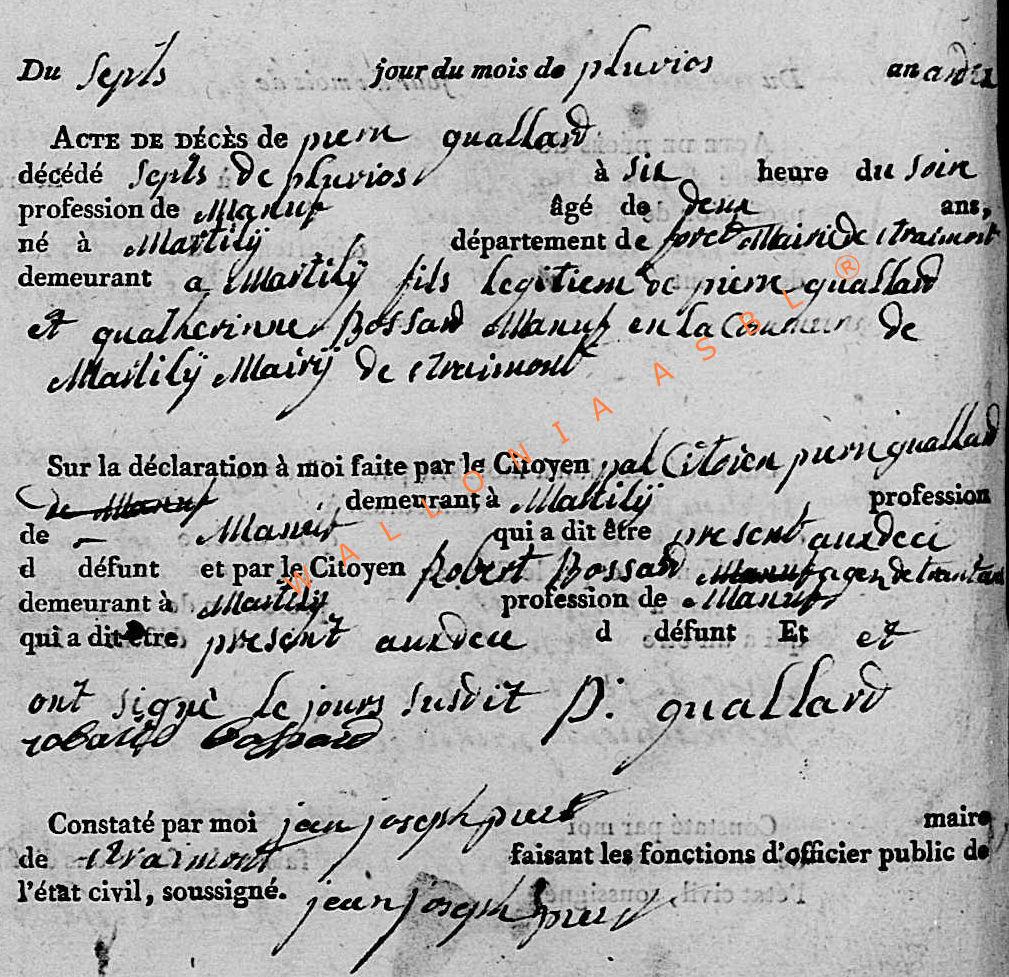 Du Septs jour du mois de pluvios an an dix
ACTE DE DÉCÈS de piern guallard
décédé Septs de pluvios à Six heure du Soire
profession de Manuf âgé de deux ans,
né à Martilÿ département de foret Mairie de Straimont
demeurant a Martilÿ fils legitiem de pierre guallard
et quatherinne Bossard Manuf en la Commune de
Martilÿ Mairÿ de Straimont
Sur la déclaration à moi faite par le Citoyen pal Citoien piern guallard
de Manuf demeurant à Martilÿ profession
de Manuf qui a dit être present auxdeci
d défunt et par le Citoyen Robert Bossard Manuf agez de
demeurant à Martilÿ profession de Manuf
qui a dit être present auxdeci d défunt Et et
ont signè le jours Susdit P. guallard
Bossard
Constaté par moi jean joseph maire
de Straimont faisant les fonctions d'officier public de
l'état civil, soussigné. jean joseph
WALLONIA ASBL ®